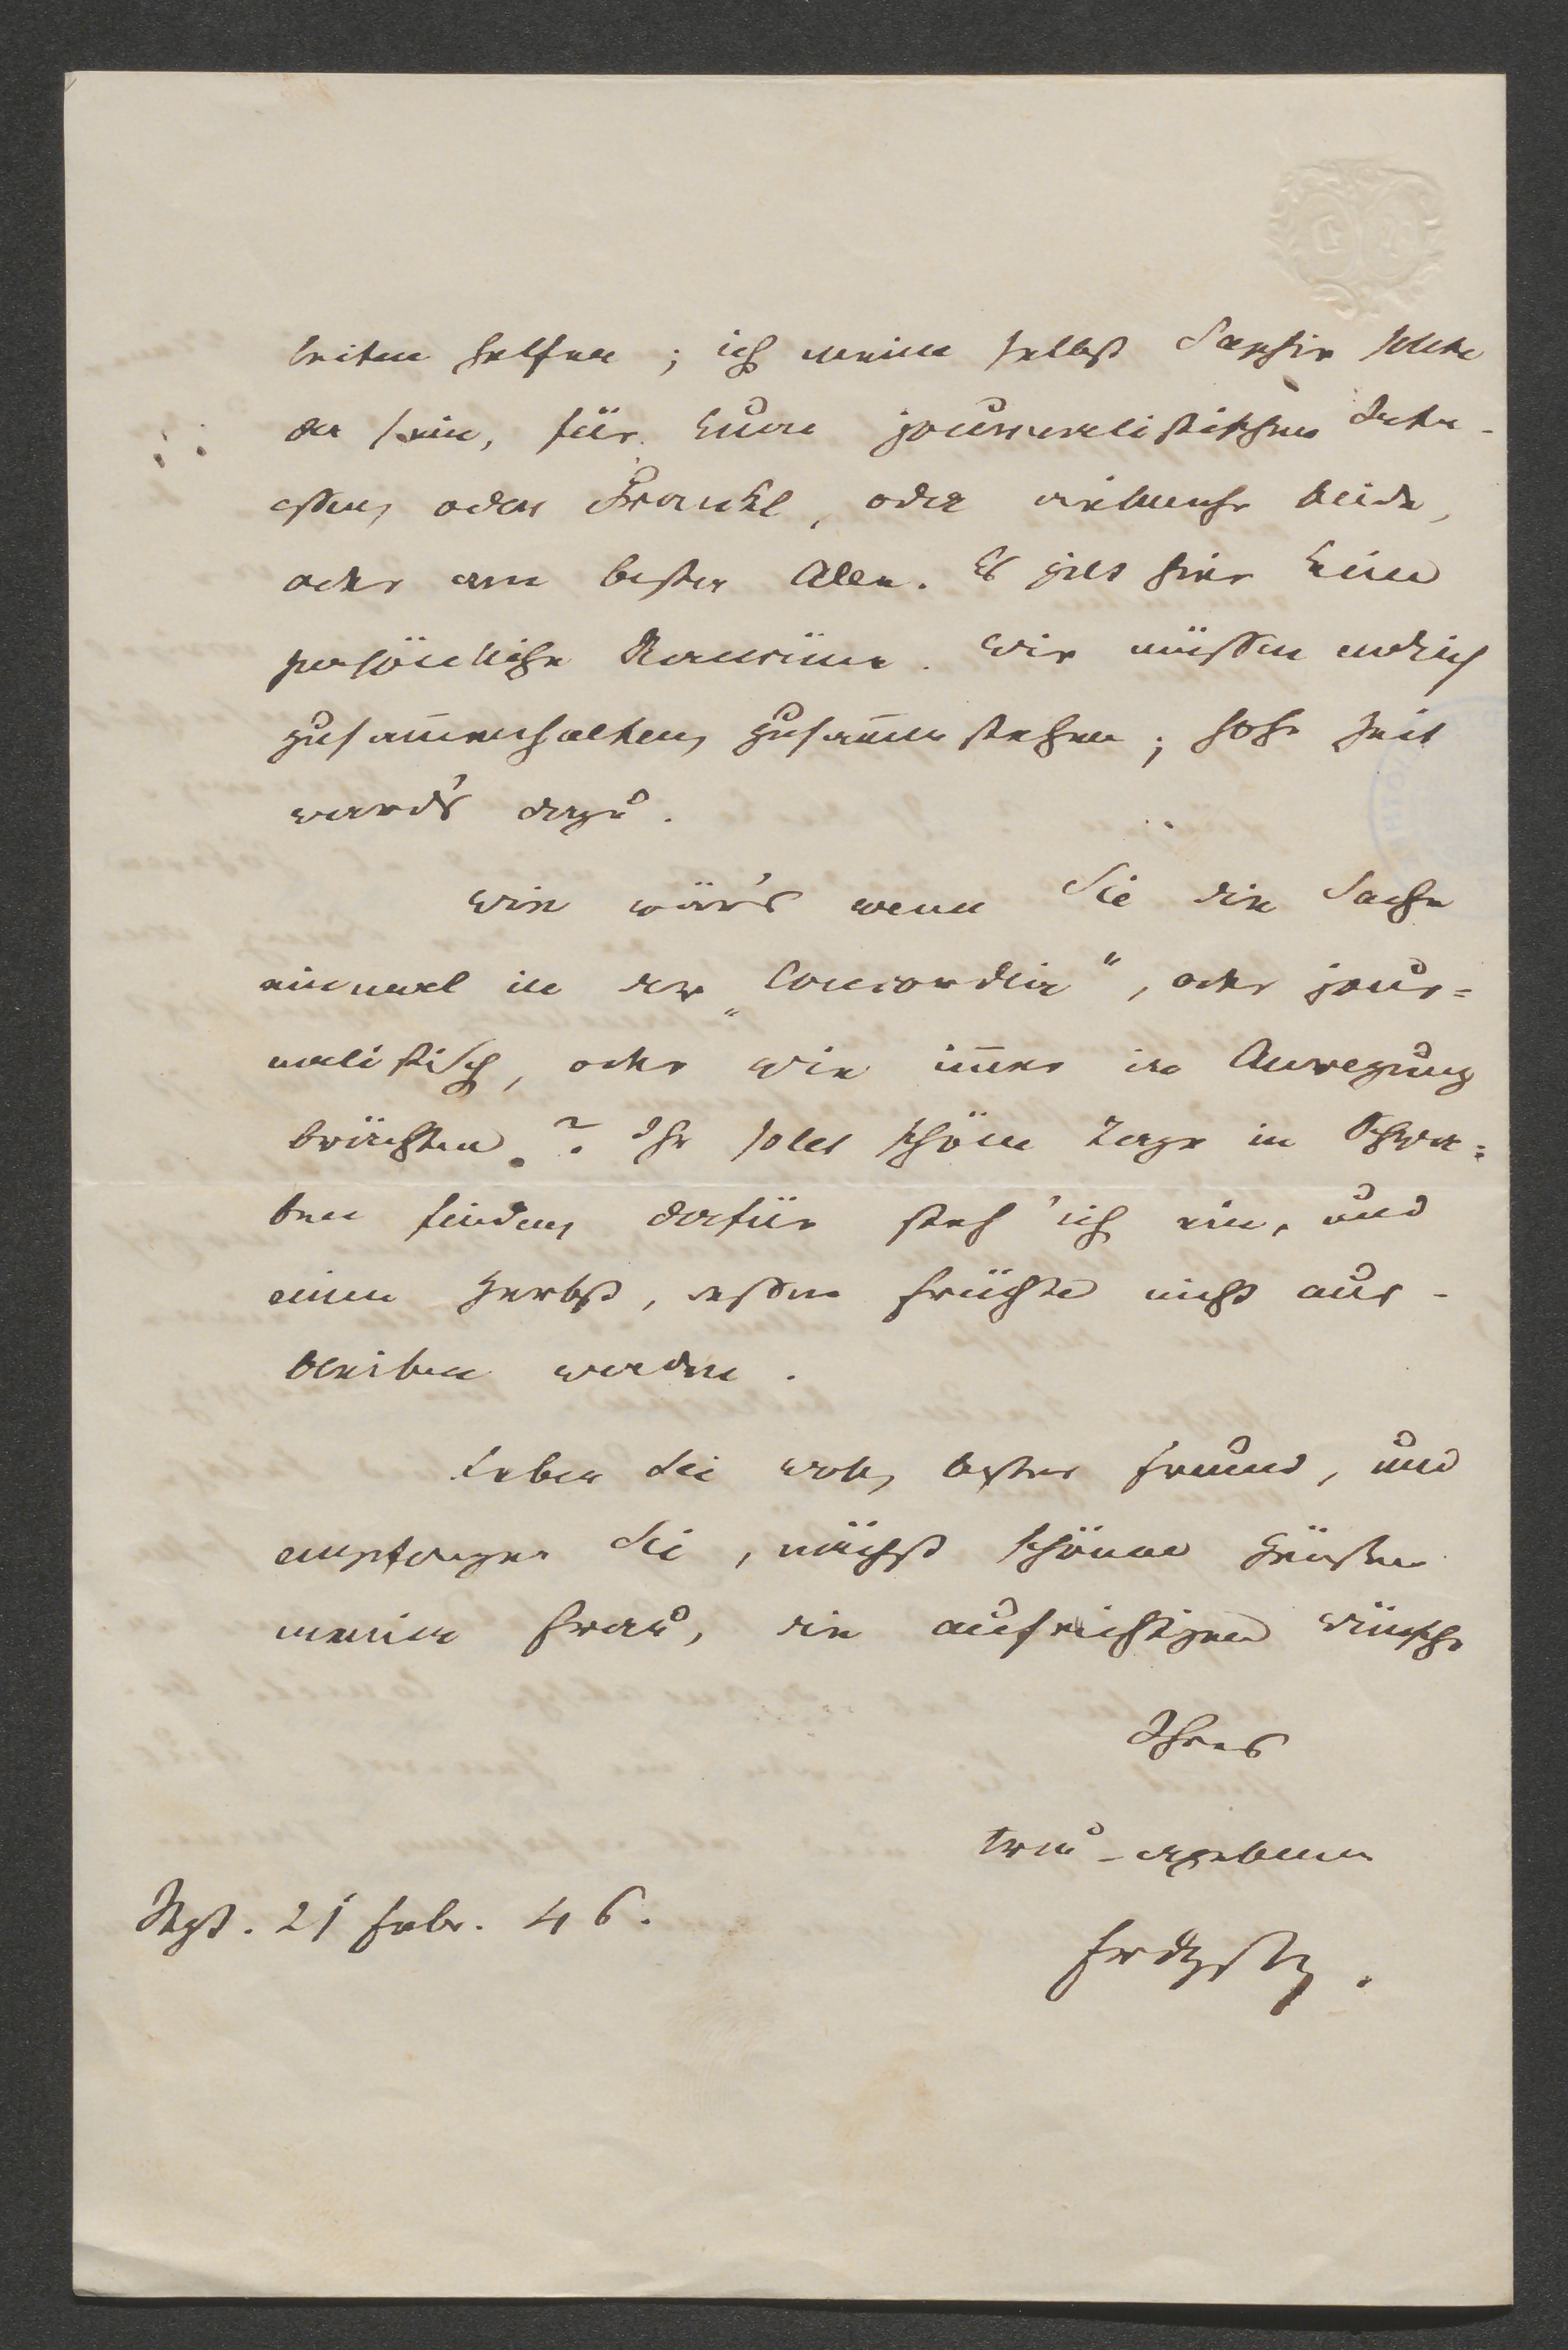 beiten helfen; ich meine selbst Saphir sollte
da sein, für Eure journalistischen Inter-
essen, oder Frankl, oder vielmehr beide,
oder am besten Alle. Es gilt hier keine
persönliche Rancüne. Wir müssen endlich
zusam̅enhalten, zusam̅en stehen; hohe Zeit
ward's dazu.
Wie wär's wenn Sie die Sache
einmal in der „Concordia“, oder jour=
nalistisch, oder wie im̅er in Anregung
brächten? Ihr sollt schöne Tage in Schwa=
ben finden, dafür steh' ich ein, und
einen Herbst, dessen Früchte nicht aus-
bleiben werden.
Leben Sie wohl, bester Freund, und
empfangen Sie, nächst schönen Grüßen
meiner Frau, die aufrichtigen Wünsche
Ihres
treu-ergebenen
Stgt. 21 Febr. 46.